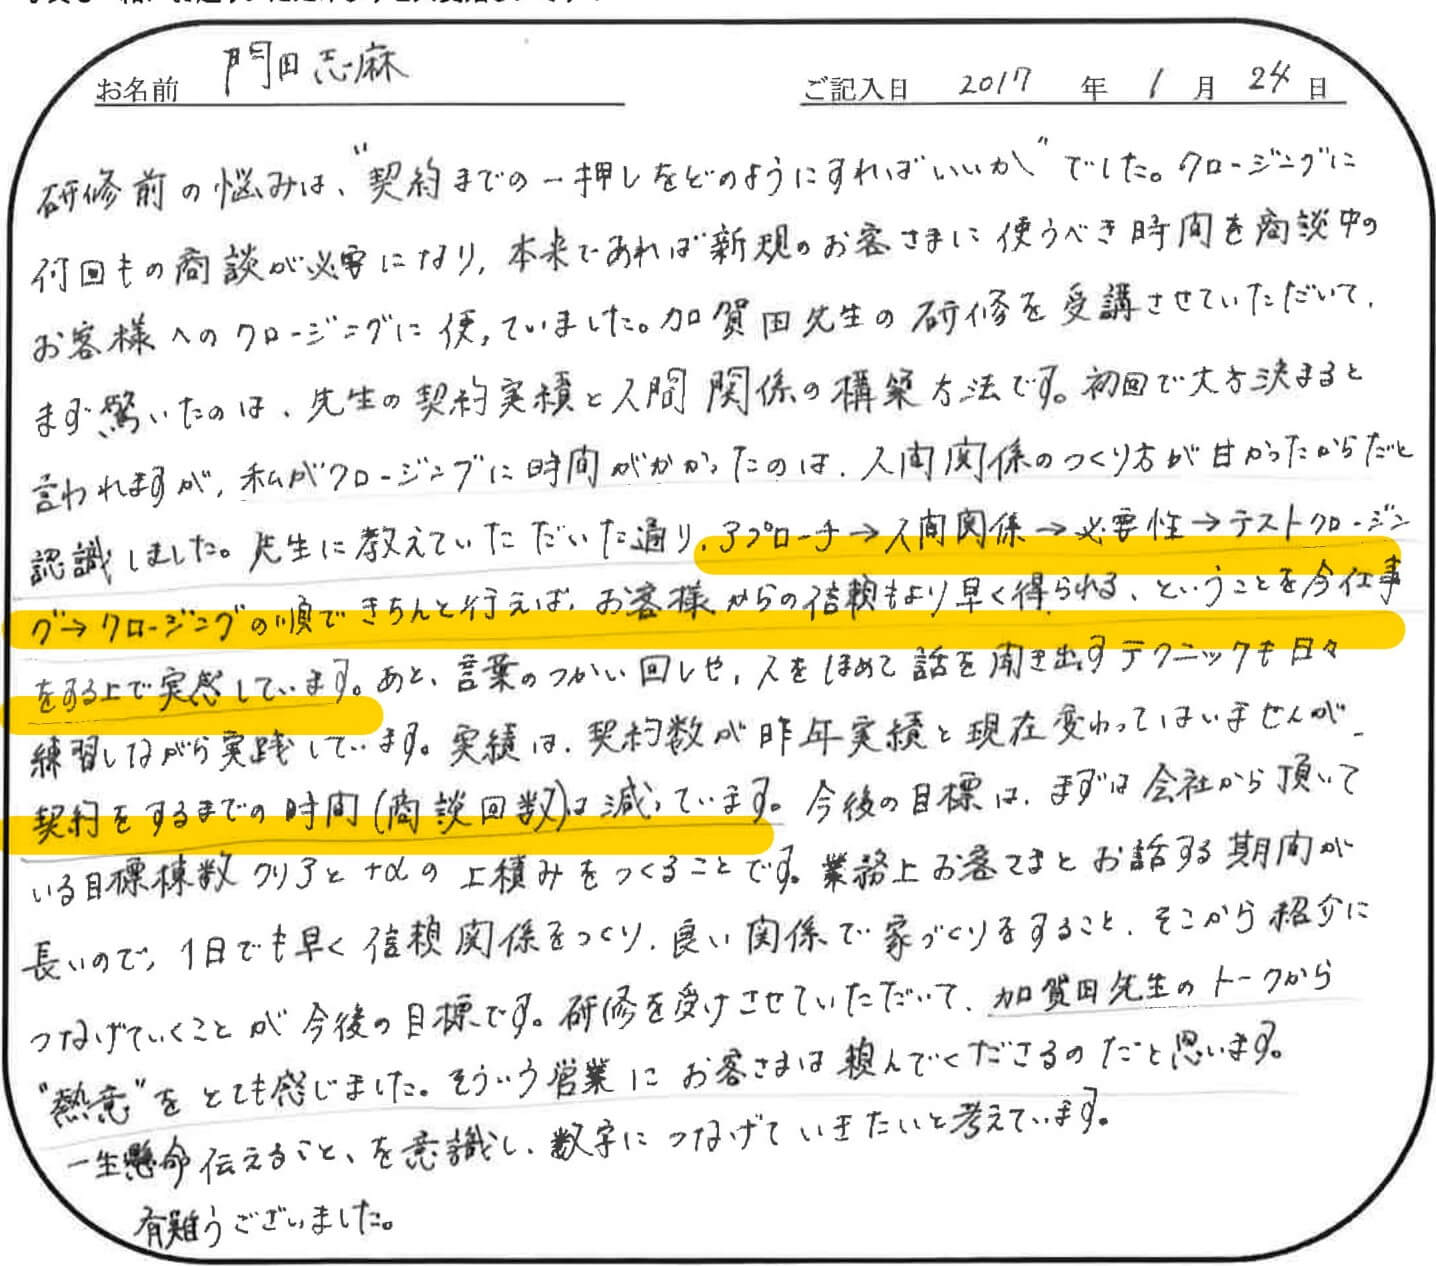 お名前 門田志麻 ご記入日 2017 年 1 月 24 日
研修前の悩みは、"契約までの一押しをどのようにすればいいか"でした。クロージングに
何回もの商談が必要になり、本来であれば新規のお客さまに使うべき時間を商談中の
お客様へのクロージングに使っていました。加賀田先生の研修を受講させていただいて、
まず驚いたのは、先生の契約実績と人間関係の構築方法です。初回で大方決まると
言われますが、私がクロージングに時間がかかったのは、人間関係のつくり方が甘かったからだと
認識しました。先生に教えていただいた通り、アプローチ→人間関係→必要性→テストクロージン
グ→クロージングの順できちんと行えば、お客様からの信頼もより早く得られる、ということを今仕事
をする上で実感しています。あと、言葉のつかい回しや、人をほめて話を聞き出すテクニックも日々
練習しながら実践しています。実績は、契約数が昨年実績と現在変わってはいませんが、
契約をするまでの時間(商談回数)は減っています。今後の目標は、まずは会社から頂いて
いる目標棟数クリアと+αの上積みをつくることです。業務上お客さまとお話する期間が
長いので、1日でも早く信頼関係をつくり、良い関係で家づくりをすること、そこから紹介に
つなげていくことが今後の目標です。研修を受けさせていただいて、加賀田先生のトークから
"熱意"をとても感じました。そういう営業にお客さまは頼んでくださるのだと思います。
一生懸命伝えること、を意識し、数字につなげていきたいと考えています。
有難うございました。